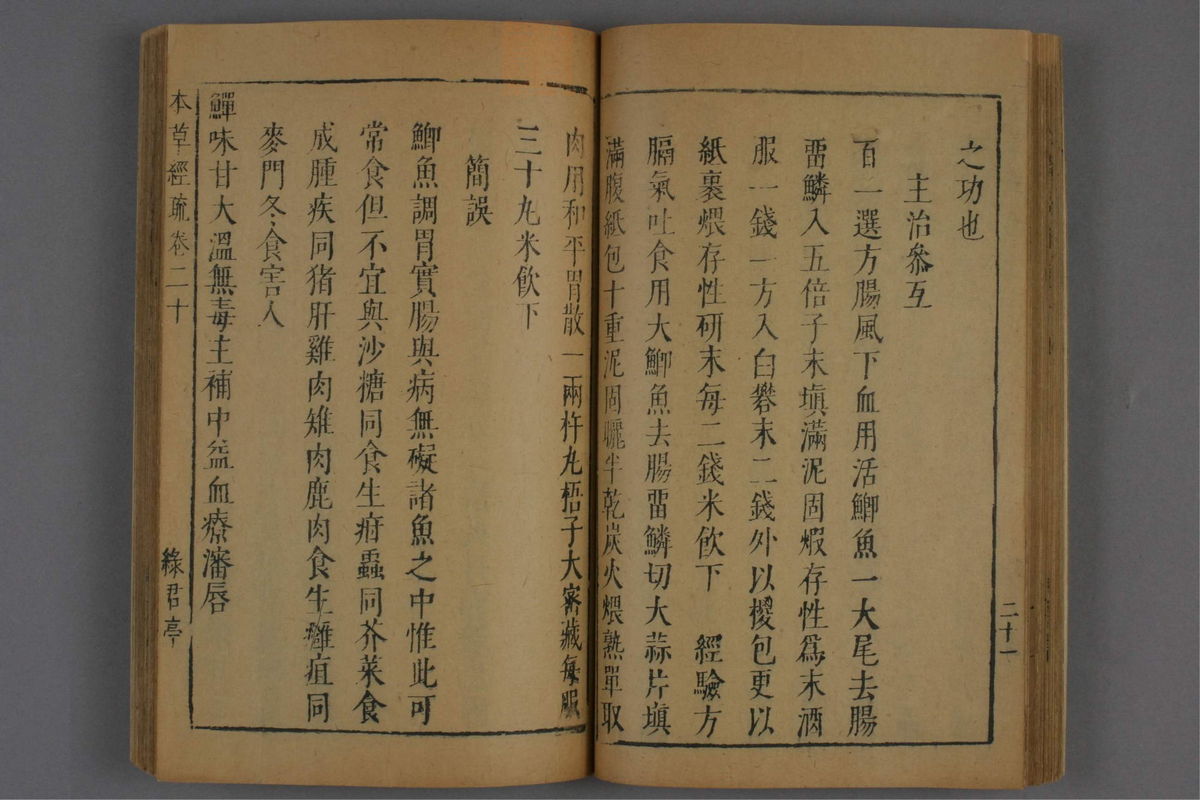 之功也
主治參互
百一選方腸風下血用活鯽魚一大尾去腸
畱鱗入五倍子末塡滿泥固煅存性爲末酒
服一錢一方入白礬末二錢外以椶包更以
紙裹煨存性研末每二錢米飮下 經驗方
膈氣吐食用大鯽魚去腸畱鱗切大蒜片塡
滿腹紙包十重泥固曬半乾炭火煨熟單取
二十一
肉用和平胃散一兩杵丸梧子大宻藏每服
三十丸米飮下
簡誤
鯽魚調胃實腸與病無礙諸魚之中惟此可
常食但不宜與沙糖同食生疳蟲同芥菜食
成腫疾同猪肝雞肉雉肉鹿肉食生癰疽同
麥門冬食害人
鱓味甘大溫無毒主補中益血療瀋唇
本草經疏卷二十
綠君亭